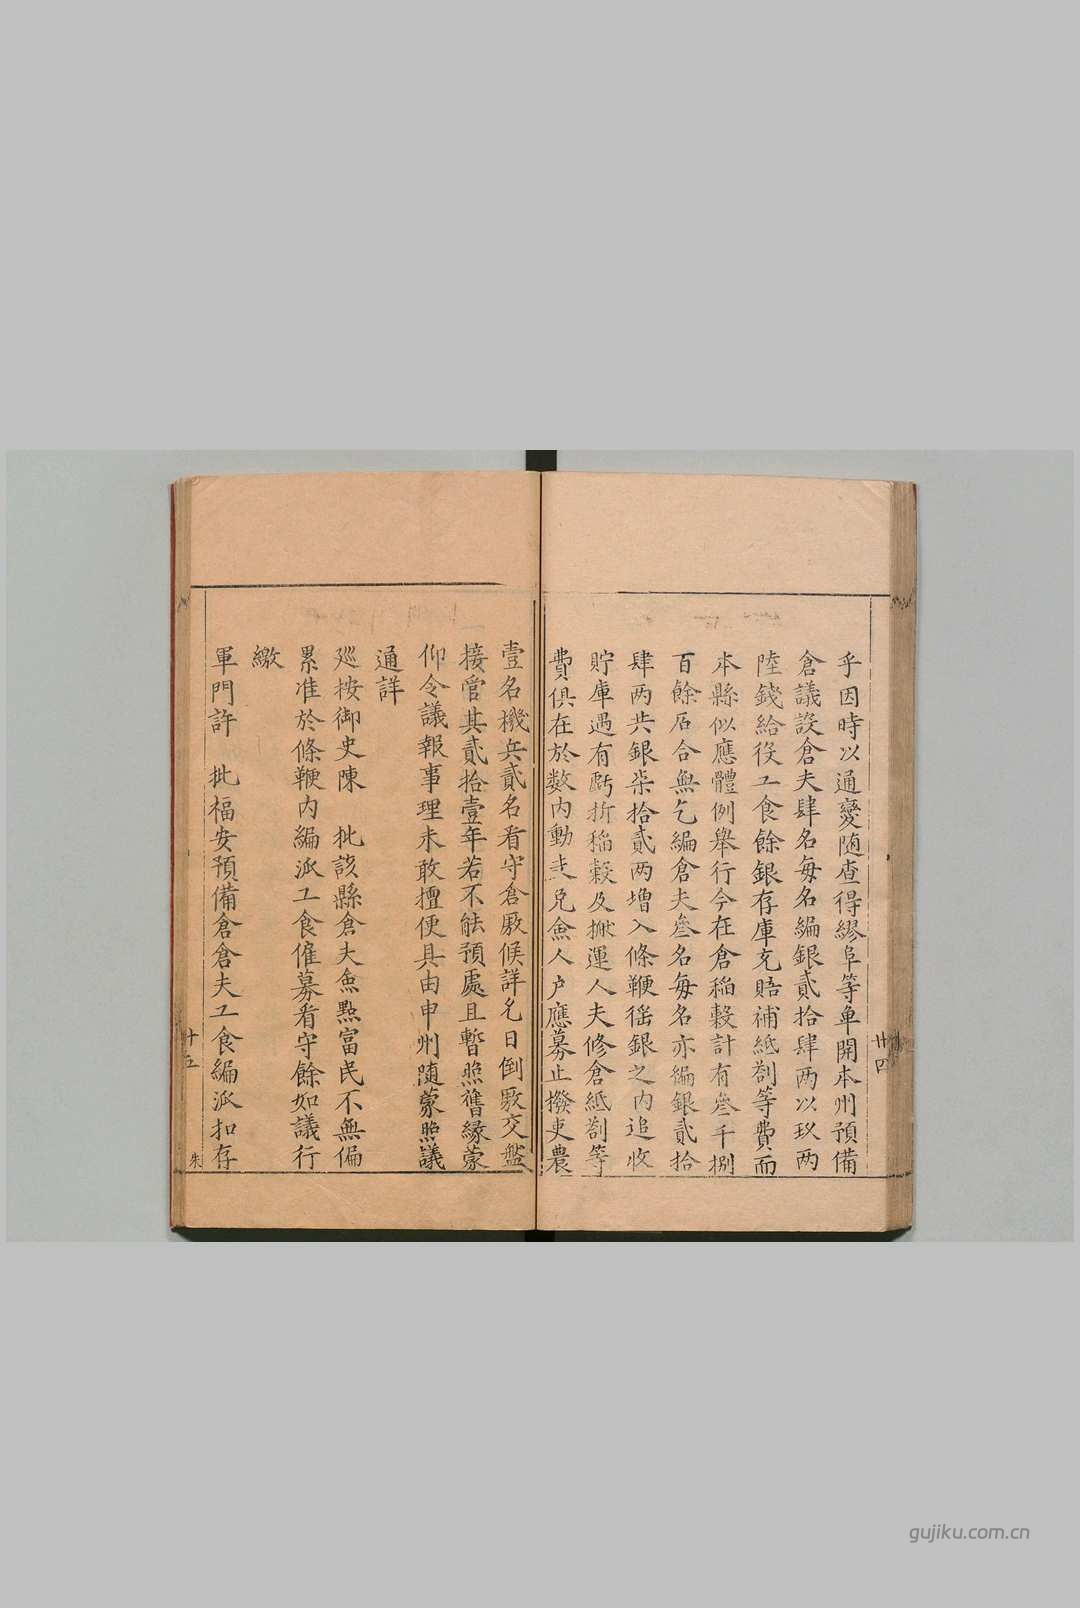 乎因時以通變随查得繆阜等单開本州預備
倉議設倉夫肆名每名編銀貳拾肆两以玖两
陸錢給役工食餘銀存庫充賠補紙劄等費而
本縣似應體例舉行今在倉稲穀計有叄千捌
百餘石合無乞編倉夫叄名每名亦編銀貳拾
肆两共銀柒拾貳两增入條鞭徭銀之内追收
貯庫遇有虧折稲穀及搬運人夫修倉紙劄等
費俱在於数内動支免僉人户應募止撥吏農
壹名機兵貳名看守倉厫候詳允日倒厫交盤
接管其貳拾壹年若不能預處且暫照舊緣蒙
仰令議報事理未敢擅便具由申州随蒙照議
通詳
廵按御史陳 批該縣倉夫僉㸃富民不無偏
累准於條鞭内編派工食僱募看守餘如議行
繳
軍門許 批福安預備倉倉夫工食編派扣存
廿四
十五
朱
gujiku.com.cn